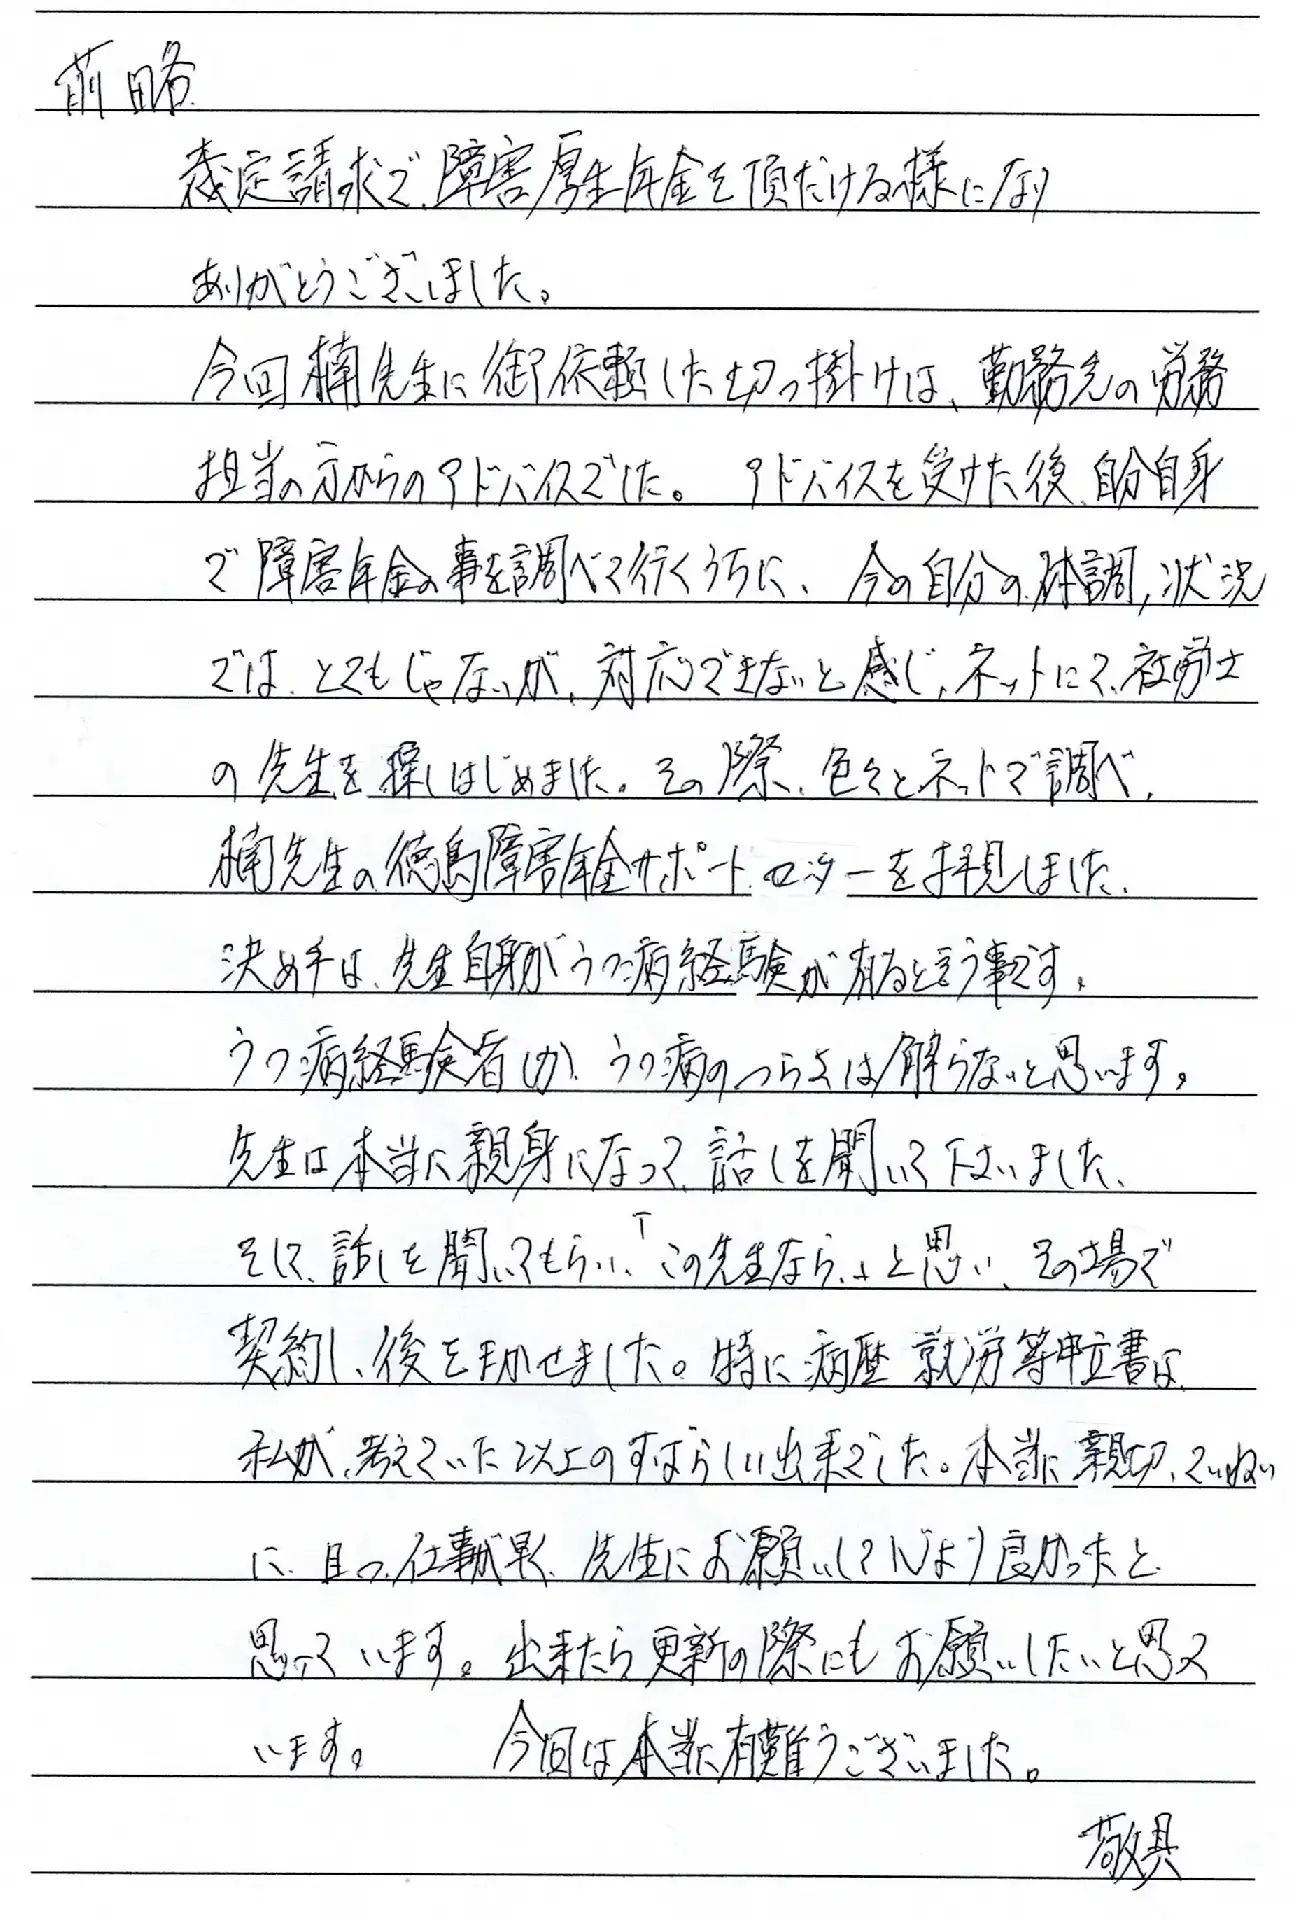 前略
裁定請求で、障害厚生年金を頂だける様になり
ありがとうございました。
今回楠先生に御依頼した切っ掛けは、勤務先の労務
担当の方からのアドバイスでした。 アドバイスを受けた後、自分自身
で障害年金の事を調べて行くうちに、今の自分の体調、状況
では、とてもじゃないが、対応できないと感じ、ネットにて、社労士
の先生を探しはじめました。その際、色々とネットで調べ、
楠先生の徳島障害年金サポートセンターを拝見しました、
決め手は、先生自身がうつ病経験が有ると言う事です。
うつ病経験者しか、うつ病のつらさは解らないと思います。
先生は本当に親身になって、話しを聞いて下さいました、
そして、話しを聞いてもらい、「この先生なら、」と思い、その場で
契約し、後を任かせました。特に病歴 就労等申立書は、
私が、考えていた以上のすばらしい出来でした。本当に親切、ていねい
に、且つ、仕事が早く、先生にお願いして心より良かったと
思っています。出来たら更新の際にもお願いしたいと思って
います。 今回は本当に有難うございました。
敬具